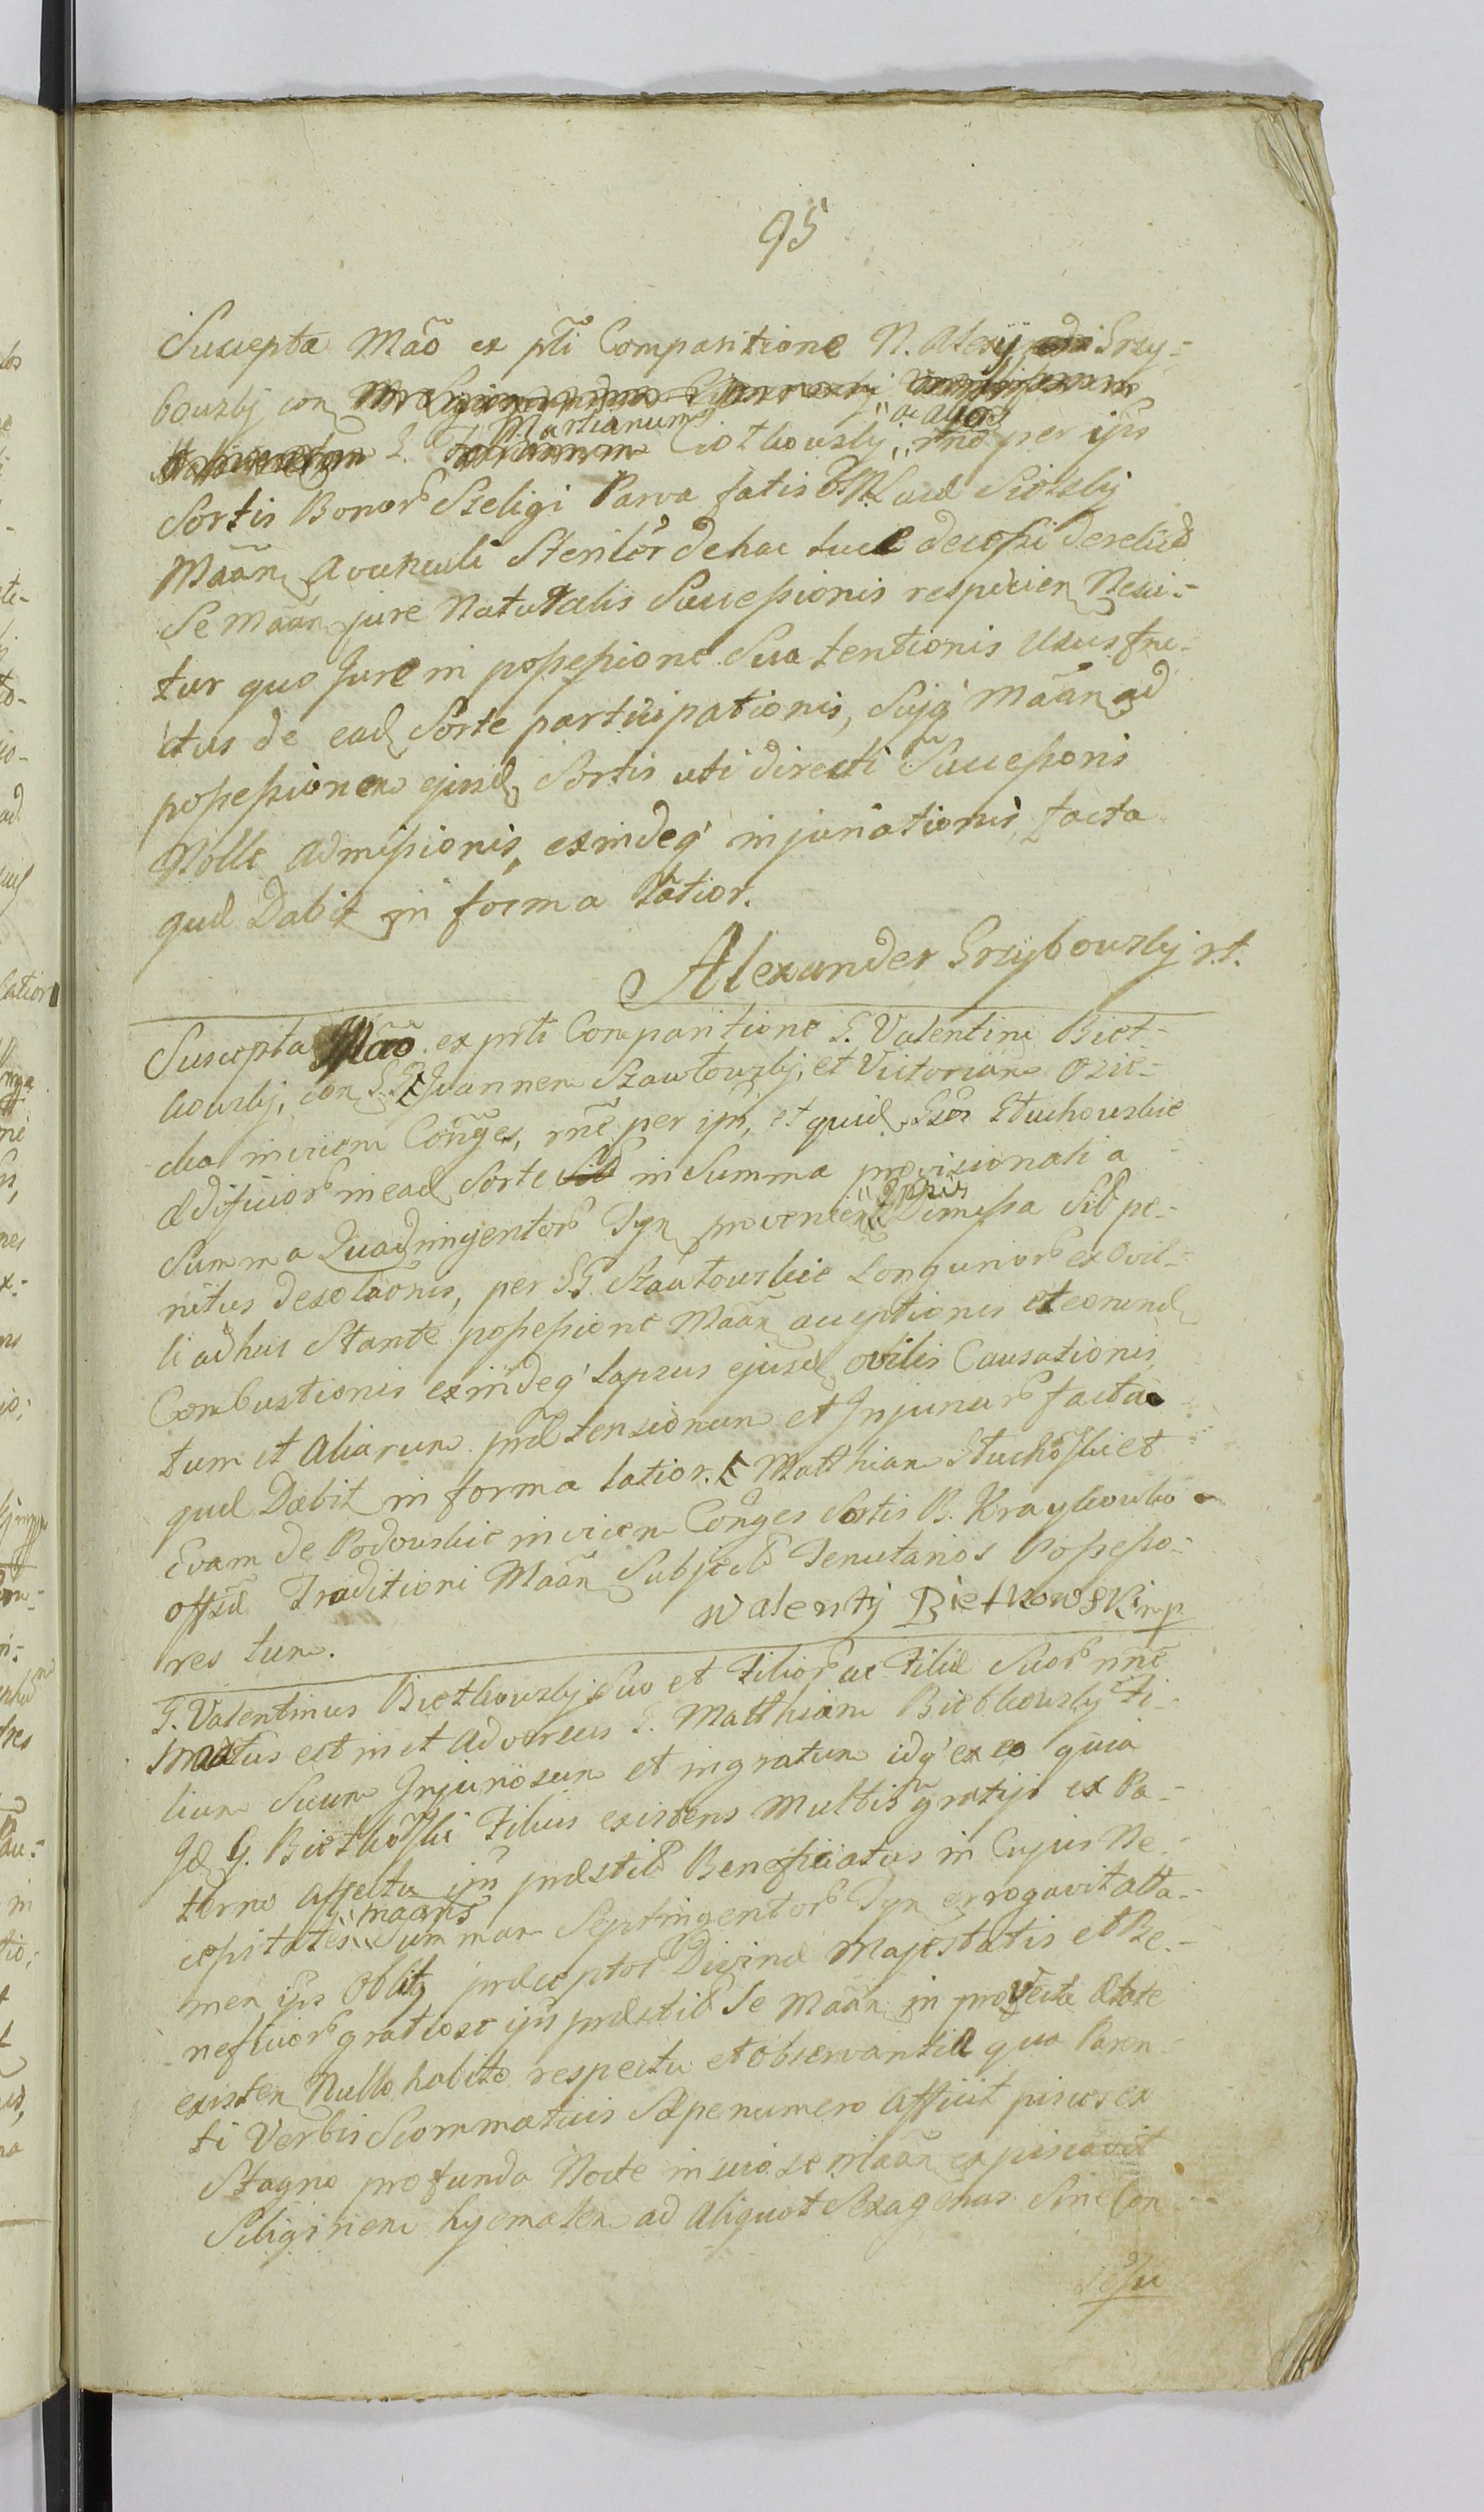 95
Suscepta Mãõ ex pñti Comparitione N. Alexy Grzy=
bowskj con
G. Martianum Ciotkowskj "ac alios" rñe per ips
Sortis Bonorb Szeligi Parva fatis Siolskj
Mãan Avunculi Sterilõr de hac luce decessi derelict
Se Mãan jure Naturalis Successionis respicien Nesci=
tur quo Jure in possessione Sua tentionis Ususfru=
ctus de ead Sorte participationis, Suiq' Mãan ad
possessionem ejusd Sortis uti directi Successoris
Nolle admissionis, exindeq' injuriationis, facta
qud Dabit in forma latior.
Alexander Grzybowskj r.t.
Suscepta Mãõ ex pñti Comparitione G. Valentini Biet=
kowskj, con G.G. Joannem Szawtowskj, et Victoriam Ozie=
cka invicem Cõnges, rñe per ips, et quid Gsõs Stuchowskie
ædificiorb in ead Sorte in Summa provisionali a
Summa Quadringentorb Tyn provenien "Oppis" Dimissa Sib pe=
nitus desolãonis, per GG. Szawtowskie Longuriorb ex Ovil=
li adhuc Stante possessione Mãan acceptionis et eorund
Combustionis exindeq' lapsus ejusd ovilis Causationis,
tum et aliarum prætensionum et Injuriarb facta
qud Dabit in forma latior. Et Matthiam Stuchõski et
Evam de Podowskie invicem Cõnges Sortis B. Kraykowko
offsd Traditioni Mãan Subject Tenutarios Possesso=
res tum.
Walenty Bietkowski mp
G. Valentinus Bietkowskj Suo et Filiorb ac Filiæ Suorb nñe
motus est in et adversus G. Matthiam Bietkowskj Fi=
lium Suum Injuriosum et ingratum idq' ex eo quia
Id G. Bietkõski Filius existens Multis gratijs ex Pa=
terno affectu ips præstit Beneficiatus in Cujus Ne=
cessitates "mãans" Summam Septingentorb Tyn errogavit atta=
men ips Oblit præceptorb Divinæ Majestatis et Be=
neficiorb gratiose ips præstit Se Mãan in provecta ætate
existen Nullo habito respectu et observantia qua Paren=
ti Verbis Scommaticis Sæpenumero afficit pisces ex
Stagno profunda Nocte in scio se Mãan expiscavit
Siliginem hyemalem ad aliquot Sexagenas Sine Con=
sesu